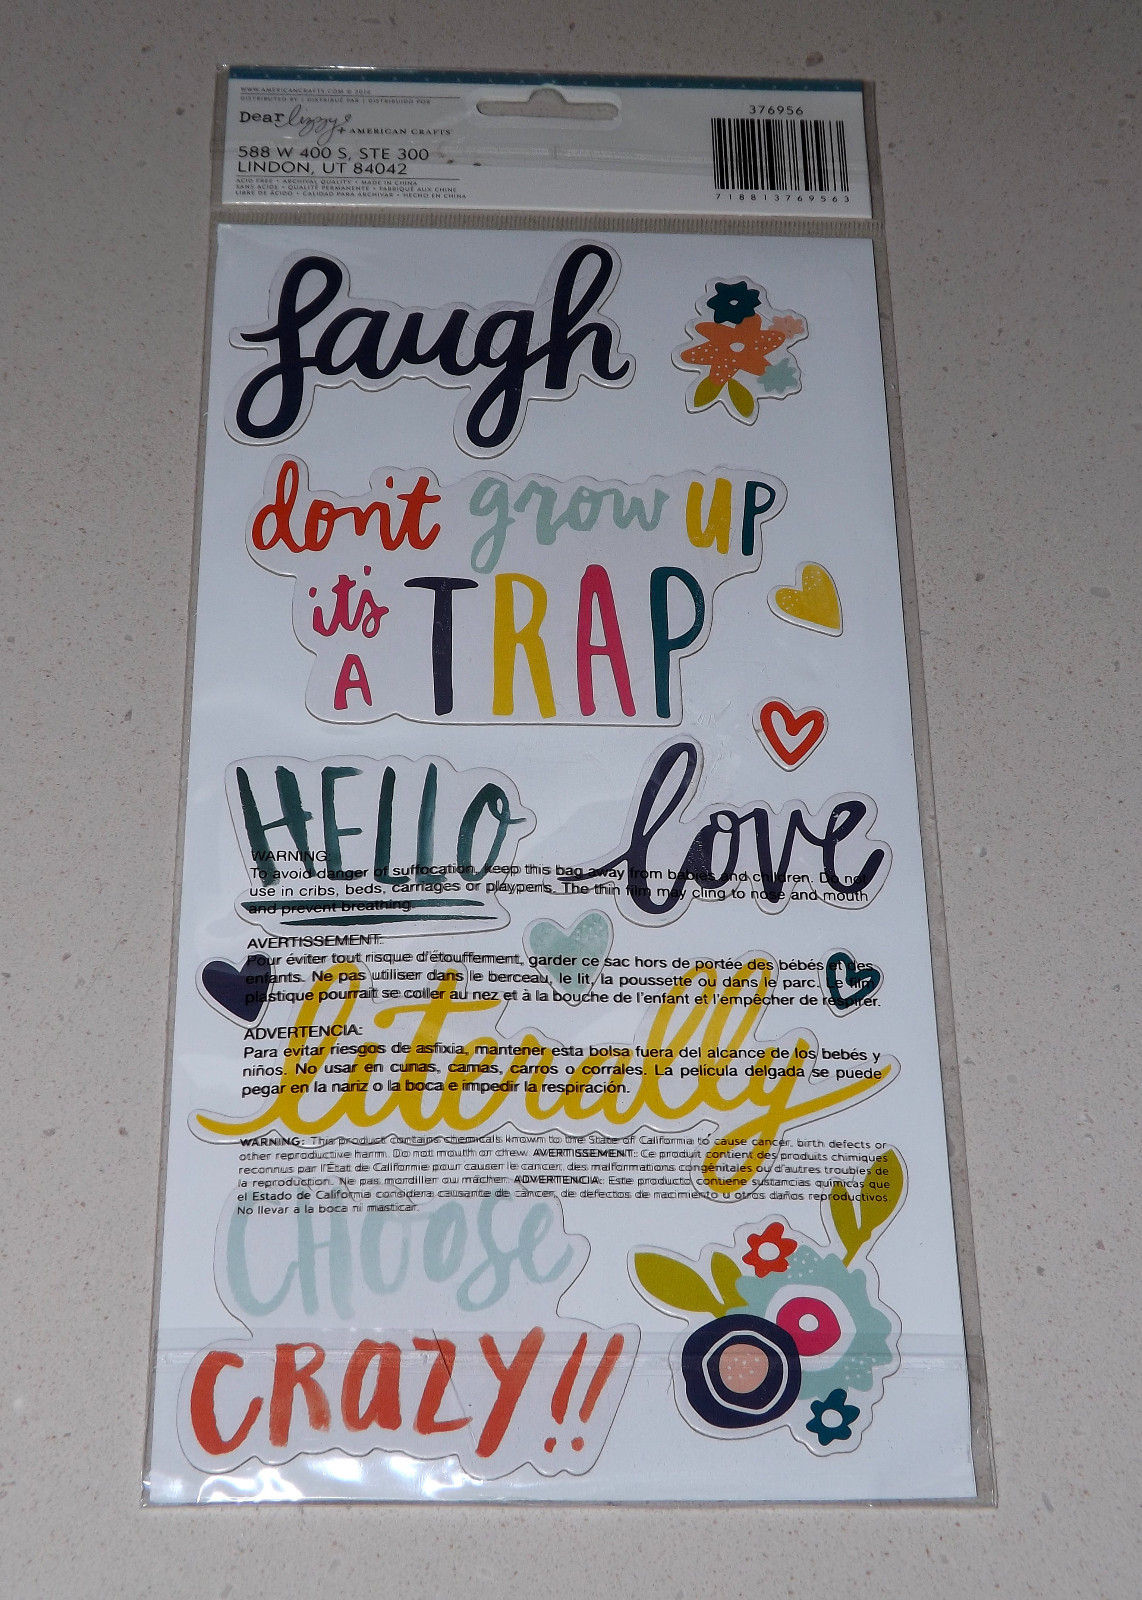 WWW.AMERICANCRAFTS.COM © 2016
DISTRIBUTED BY | DISTRIBUÉ PAR | DISTRIBUIDO POR
Dear lizzy + AMERICAN CRAFTS
588 W 400 S, STE 300
LINDON, UT 84042
ACID FREE • ARCHIVAL QUALITY • MADE IN CHINA
SANS ACIDE • QUALITÉ PERMANENTE • FABRIQUÉ AUX CHINE
LIBRE DE ÁCIDO • CALIDAD PARA ARCHIVAR • HECHO EN CHINA
376956
718813769563
laugh
don't grow UP
it's
A TRAP
HELLO
love
WARNING:
To avoid danger of suffocation, keep this bag away from babies and children. Do not
use in cribs, beds, carriages or playpens. The thin film may cling to nose and mouth
and prevent breathing.
AVERTISSEMENT:
Pour éviter tout risque d'étouffement, garder ce sac hors de portée des bébés et des
enfants. Ne pas utiliser dans le berceau, le lit, la poussette ou dans le parc. Le film
plastique pourrait se coller au nez et à la bouche de l'enfant et l'empêcher de respirer.
literally
ADVERTENCIA:
Para evitar riesgos de asfixia, mantener esta bolsa fuera del alcance de los bebés y
niños. No usar en cunas, camas, carros o corrales. La película delgada se puede
pegar en la nariz o la boca e impedir la respiración.
WARNING: This product contains chemicals known to the State of California to cause cancer, birth defects or
other reproductive harm. Do not mouth or chew. AVERTISSEMENT: Ce produit contient des produits chimiques
reconnus par l'État de Californie pour causer le cancer, des malformations congénitales ou d'autres troubles de
la reproduction. Ne pas mordiller ou mâcher. ADVERTENCIA: Este producto contiene sustancias químicas que
el Estado de California considera causante de cáncer, de defectos de nacimiento u otros daños reproductivos.
No llevar a la boca ni masticar.
CHOOSE
CRAZY!!